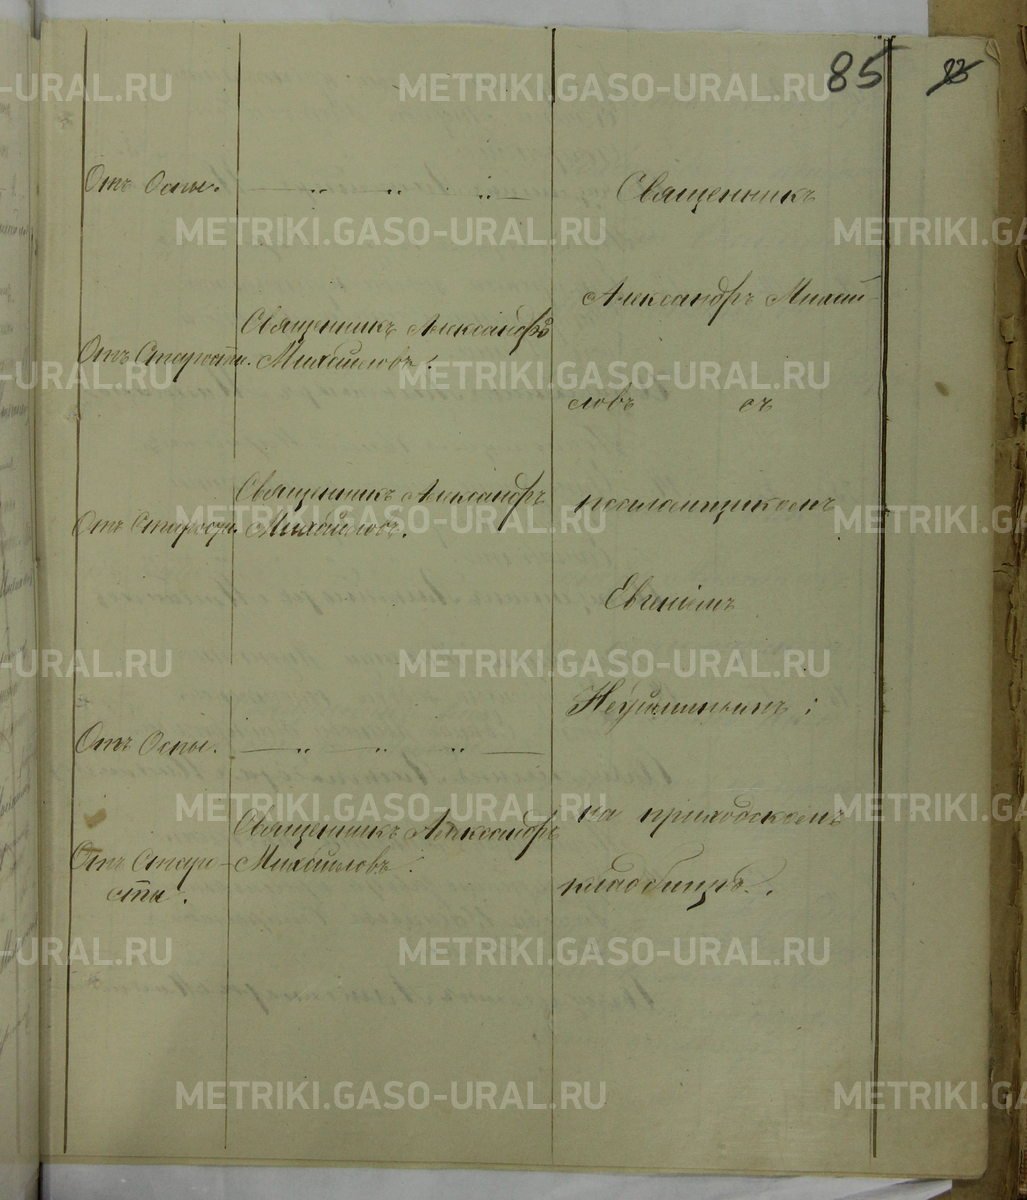 85
Отъ Оспы.
Священникъ
Александръ Михай-
Священникъ Александръ
Отъ Старости. Михайловъ.
ловъ съ
Священникъ Александръ
псаломщикомъ
Отъ Старости. Михайловъ.
Евгеніемъ
Неуйминымъ;
Отъ Оспы.
на приходскомъ
Священникъ Александръ
Отъ Старо- Михайловъ.
сти.
кладбищѣ.
METRIKI.GASO-URAL.RU